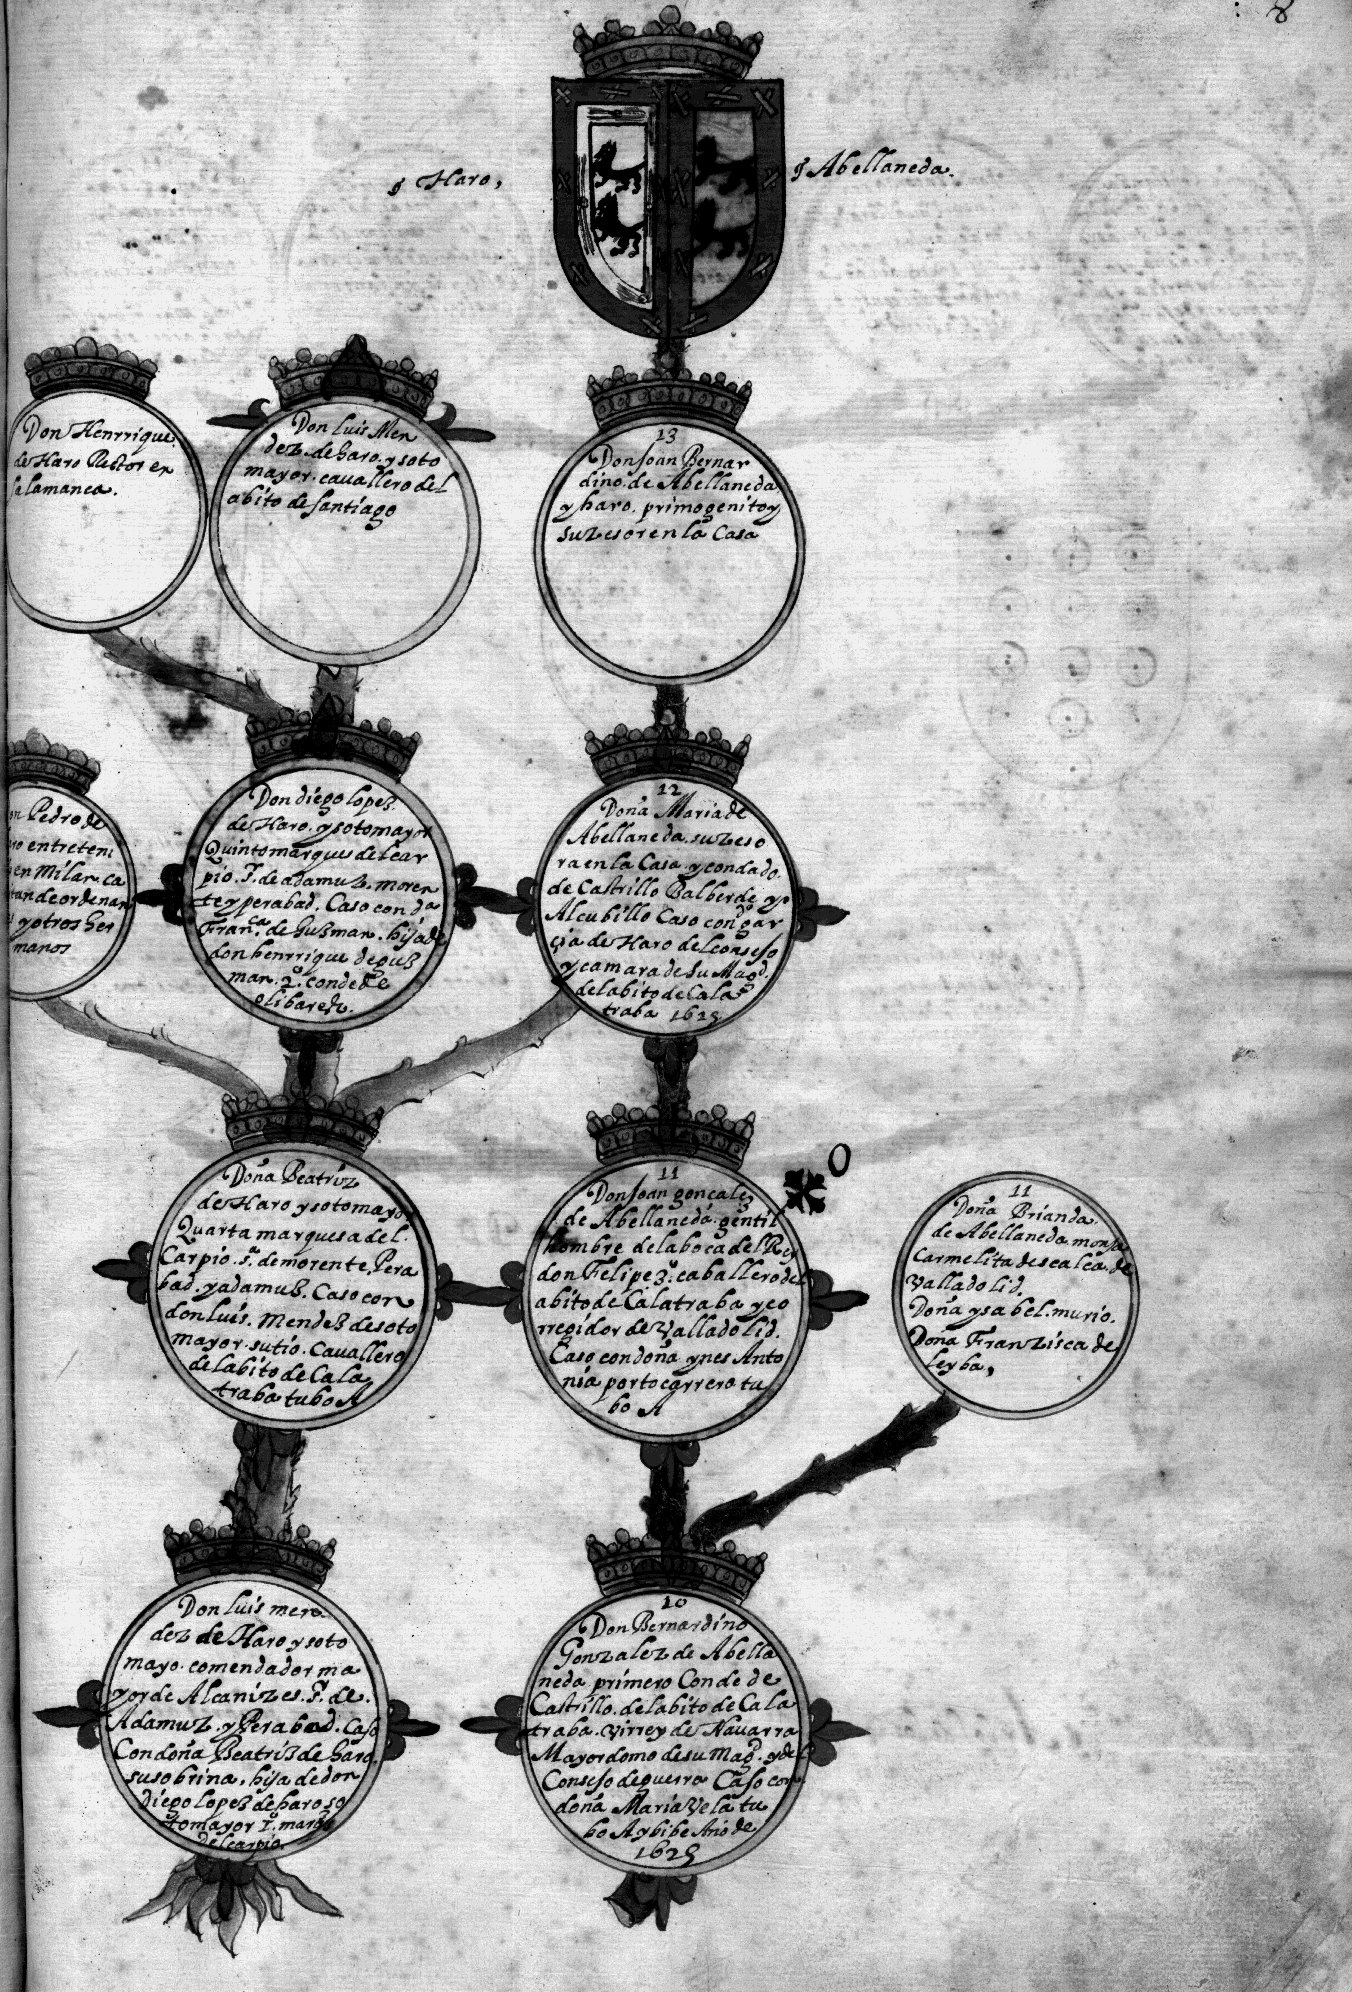 8
Haro,
Abellaneda.
Don Henrrique
de Haro Rector en
salamanca.
Don luis Men
dez. de haro. y soto
mayor. cauallero del
abito de santiago
13
Don Joan Bernar
dino. de Abellaneda
y haro. primogenito y
suzesor en la Casa
on Pedro de
ro entreteni
en Milan ca
tan de ordenan
s y otros her
manos
Don diego lopez.
de Haro. y sotomayor
Quinto marques del car
pio. Sr. de adamuz. moren
te y perabad. Caso con da
Franca. de Guzman. hija de
don henrrique de guz
man. 2º. conde de
olibares.
12
Doña Maria de
Abellaneda. suzeso
ra en la Casa y condado.
de Castrillo Balberde. y
Alcubillo Caso con do gar
çia de Haro del consejo
y camara de su Magd.
del abito de Cala
traba 1625
Doña Beatriz
de Haro y sotomayor
Quarta marquesa del.
Carpio. sra. de morente, Pera
bad. y adamuz. Caso con
don luis. Mendez de soto
mayor. su tio. Cauallero
del abito de Cala
traba tubo A
11
Don Joan gonçalez
de Abellaneda. gentil
hombre de la boca del Rey
don Felipe 3º. caballero del
abito de Calatraba y co
rregidor de Valladolid.
Caso con doña ynes Anto
nia portocarrero tu
bo A
O
11
Doña Brianda
de Abellaneda monja
Carmelita descalça de
Valladolid.
Doña ysabel. murio.
Doña Franzisca de
leyba,
Don luis men
dez de Haro y soto
mayo. comendador ma
yor de Alcanizes. Sr. de.
Adamuz. y Perabad. Caso
Con doña Beatriz de haro.
su sobrina, hija de don
diego lopez de haro so
tomayor 1º. marqs
del carpio
10
Don Bernardino
Gonzalez de Abella
neda primero Conde de
Castrillo. del abito de Cala
traba. virrey de Nauarra
Mayordomo de su Magd. y del
Consejo de guerra Caso con
doña Maria Vela tu
bo A y bibe Año de
1625